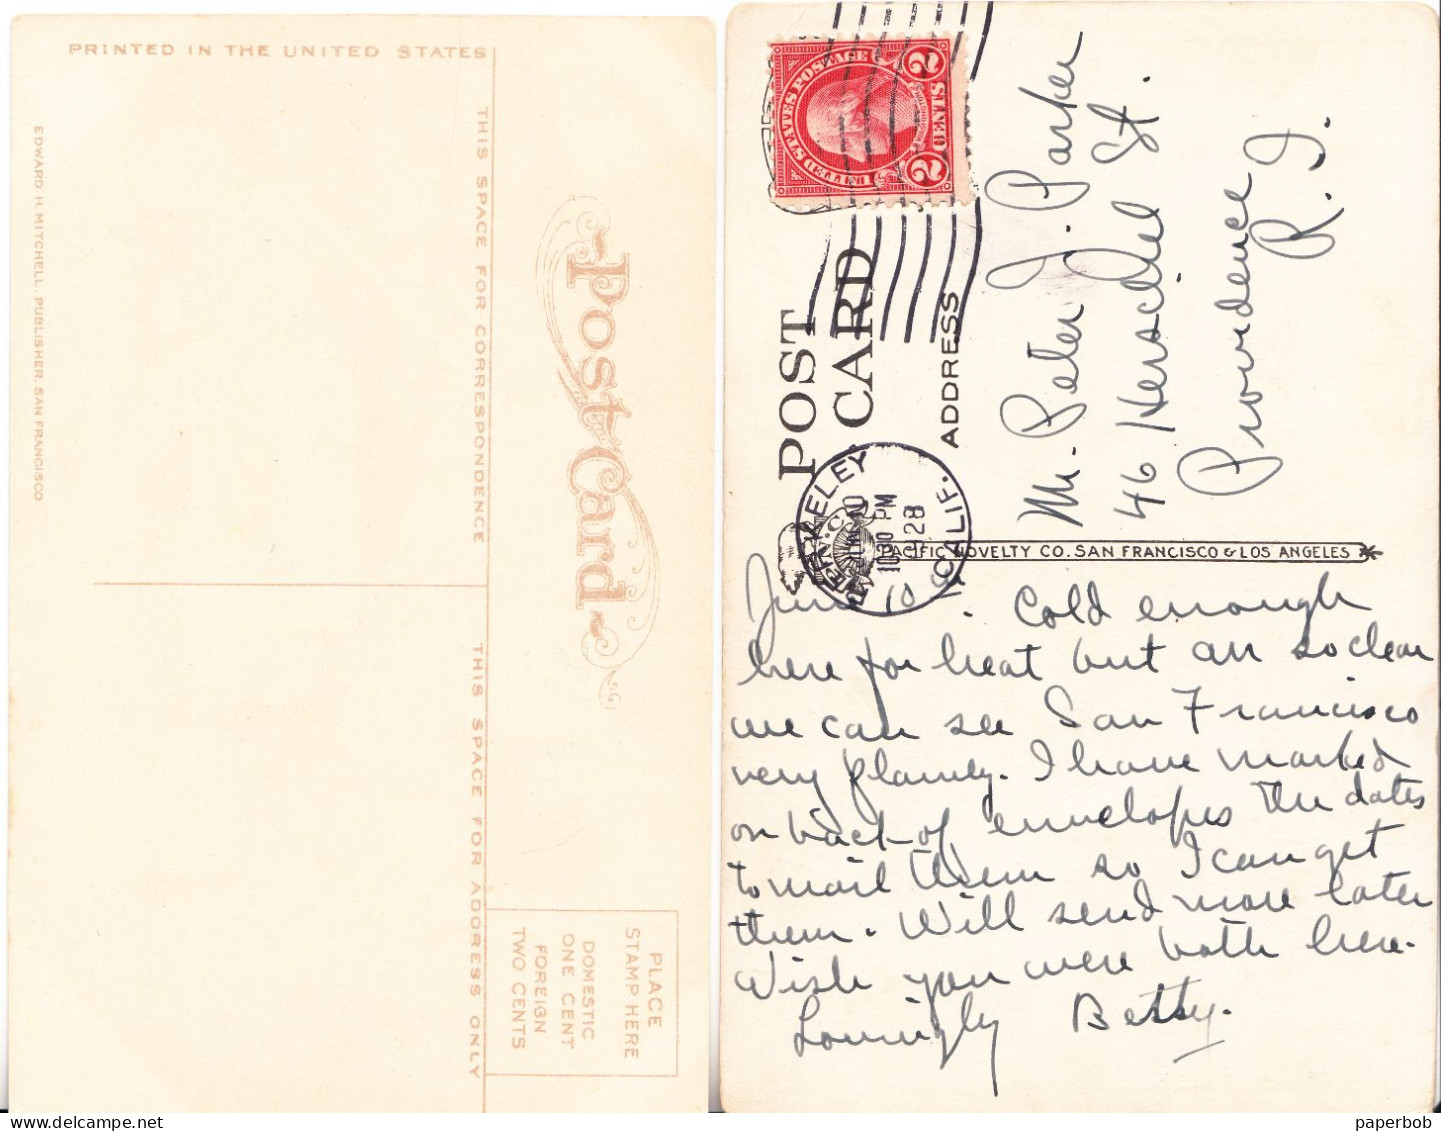 PRINTED IN THE UNITED STATES
EDWARD H. MITCHELL, PUBLISHER, SAN FRANCISCO
THIS SPACE FOR CORRESPONDENCE
Post Card
THIS SPACE FOR ADDRESS ONLY
PLACE
STAMP HERE
DOMESTIC
ONE CENT
FOREIGN
TWO CENTS
UNITED STATES POSTAGE
2 CENTS 2
POST CARD
ADDRESS
BERKELEY
10 30 PM
1928
CALIF.
Mr. Peter J. Parker
46 Herschel St.
Providence
R. I.
PACIFIC NOVELTY CO. SAN FRANCISCO & LOS ANGELES
June 10. Cold enough
here for heat but air so clear
we can see San Francisco
very plainly. I have marked
on back of envelopes the dates
to mail them so I can get
them. Will send more later
Wish you were both here.
Lovingly Betty.
delcampe.net
paperbob